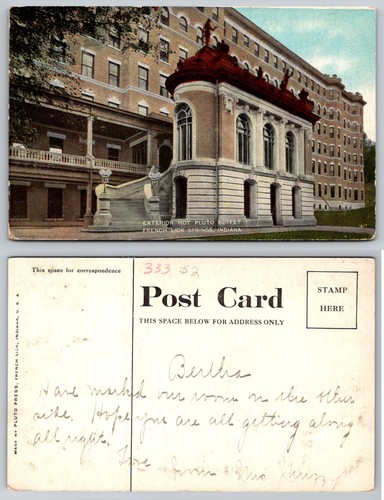 EXTERIOR HOT PLUTO BUFFET
FRENCH LICK SPRINGS, INDIANA
This space for correspondence
333 52
Post Card
THIS SPACE BELOW FOR ADDRESS ONLY
STAMP
HERE
MADE BY PLUTO PRESS, FRENCH LICK, INDIANA, U. S. A.
Bertha
Have marked our room on the other
side. Hope you are all getting along
all right.
Love
from Mrs